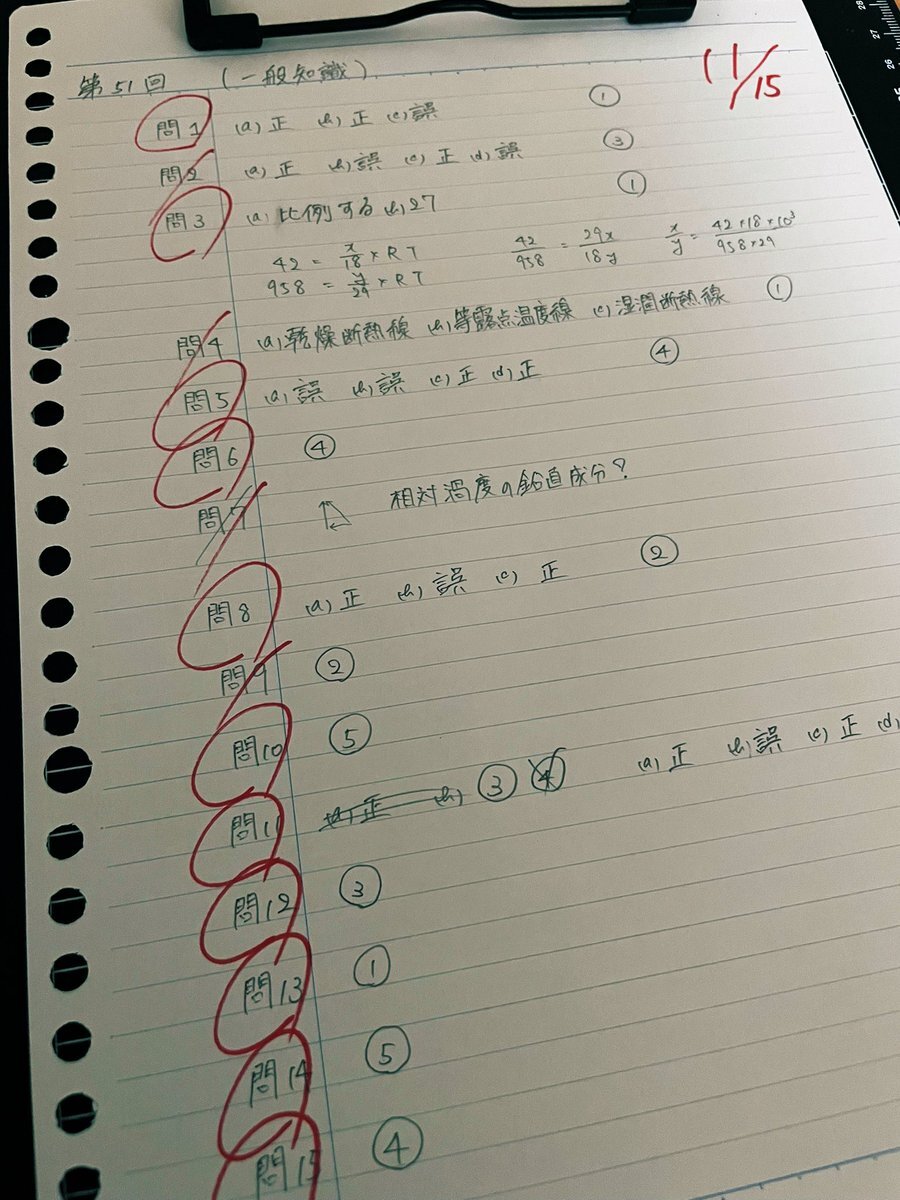 第51回 (一般知識)
11/15
問1 (a) 正 (b) 正 (c) 誤 ①
問2 (a) 正 (b) 誤 (c) 正 (d) 誤 ③
問3 (a) 比例する (b) 27 ①
42 = x/18 × RT 42/958 = 29x/18y x/y = 42×18×10³/958×29
958 = y/29 × RT
問4 (a) 乾燥断熱線 (b) 等露点温度線 (c) 湿潤断熱線 ①
問5 (a) 誤 (b) 誤 (c) 正 (d) 正 ④
問6 ④
問7 相対渦度の鉛直成分?
問8 (a) 正 (b) 誤 (c) 正 ②
問9 ②
問10 ⑤
問11 (a) 正 (b) ③ ④ (a) 正 (b) 誤 (c) 正 (d)
問12 ③
問13 ①
問14 ⑤
問15 ④
28
27
26